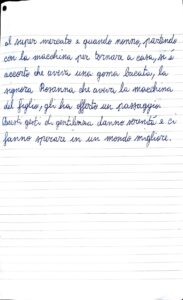 al super mercato e quando nonno, partendo
con la macchina per tornare a casa, si è
accorto che aveva una goma bucata, la
signora Rosanna, che aveva la macchina
del figlio, gli ha offerto un passaggio.
Questi gesti di gentilezza danno serenità e ci
fanno sperare in un mondo migliore.